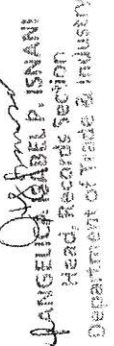 ANGELICA ISABEL P. ISNANI
Head, Records Section
Department of Trade & Industry